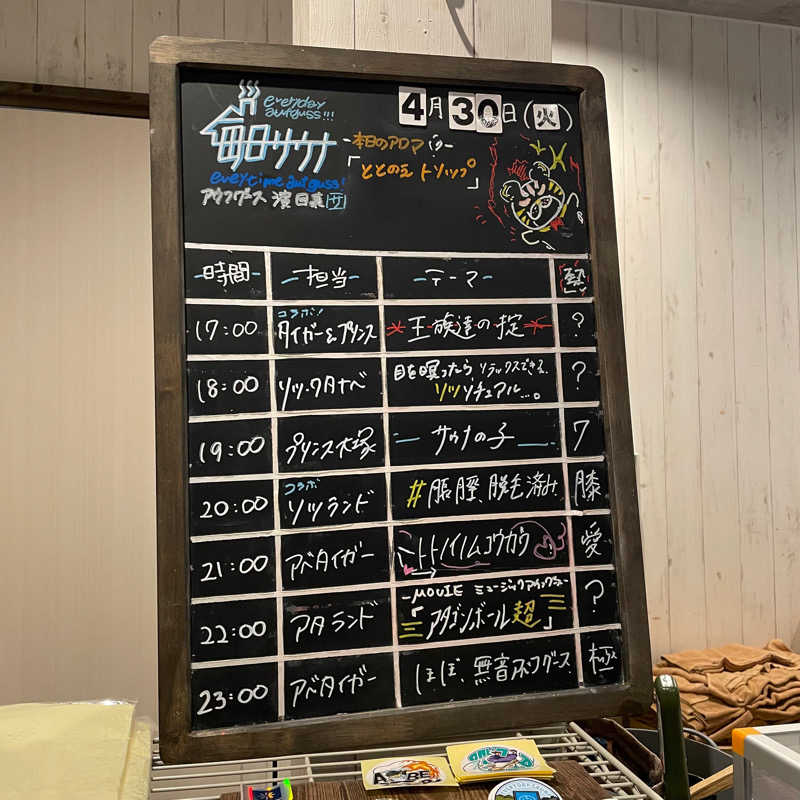 everyday
aufguss!!!
毎日サウナ
everytime aufguss!
アウフグース 濱田兵 サ
4月30日(火)
-本日のアロマは-
「ととのえトリップ」
時間 担当 テーマ
17:00 コラボ! タイガー&プリンス 王族達の掟 ?
18:00 リック・タナベ 目を瞑ったら リラックスできる、
リツゾチュアル…。 ?
19:00 プリンス大塚 サウナの子 ワ
20:00 コラボ リツランド #脹脛、脱毛済み 膝
21:00 アベタイガー トトノイノムコウガワ 愛
22:00 アタランド -MOVIE ミュージックアウフグース-
「アタゴンボール超」 ?
23:00 アベタイガー ほぼ、無音アウフグース 極